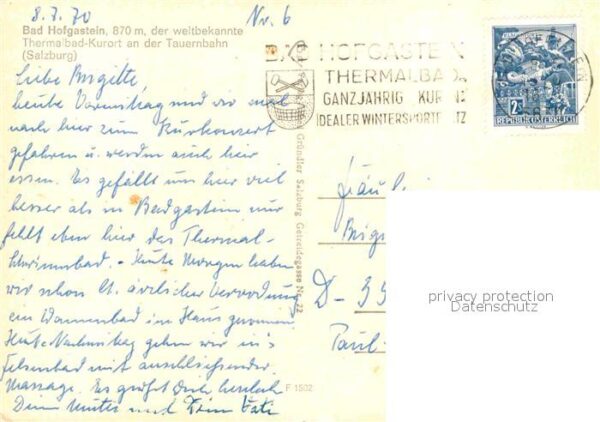 8.7.70 Nr. 6
Bad Hofgastein, 870 m, der weltbekannte
Thermalbad-Kurort an der Tauernbahn
(Salzburg)
Liebe Brigitte,
heute Vormittag sind wir mal
nach hier zum Kurkonzert
gefahren u. werden auch hier
essen. Es gefällt uns hier viel
besser als in Badgastein nur
fehlt eben hier das Thermal-
schwimmbad. - Heute Morgen haben
wir schon lt. ärztlicher Verordnung
ein Wannenbad im Haus genommen
Heute Nachmittag gehen wir in's
Felsenbad mit anschließender
Massage. Es grüßt Dich herzlich
Deine Mutter und Dein Vati
HOFGASTEIN
THERMALBAD
GANZJÄHRIG KUR
IDEALER WINTERSPORTPLATZ
2
REPUBLIK ÖSTERREICH
Gründler Salzburg Getreidegasse Nr. 22
F 1502
Fräul
Brigi
D - 35
Paul-
privacy protection
Datenschutz